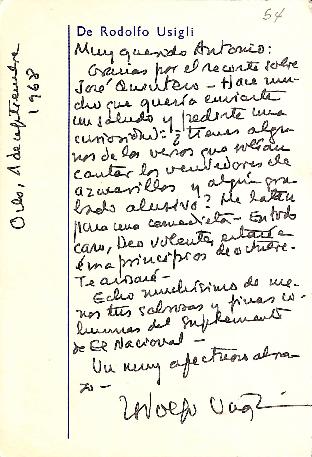 54
De Rodolfo Usigli
Oslo, 1 de septiembre
1968
Muy querido Antonio:
Gracias por el recorte sobre
José Quintero – Hace mu-
cho que quería enviarte
un saludo y pedirte una
curiosidad: ¿tienes algu-
nos de los versos que solían
cantar los vendedores de
azucarillos y algún gra-
bado alusivo? Me
para una comedieta. En todo
caso, Deo volente, estaré
a principios de octubre.
Te avisaré –
Echo muchísimo de me-
nos tus sabrosas y finas co-
lumnas del Suplemento
de El Nacional –
Un muy afectuoso abra-
zo –
Rodolfo Usigli